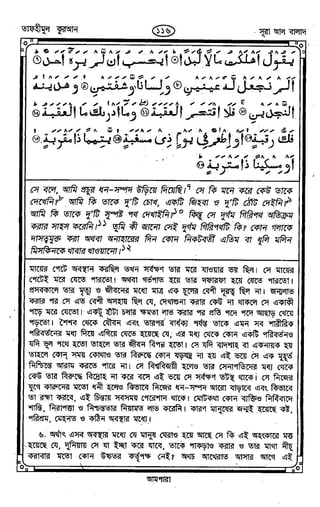 তাফহীমুল কুরআন ১১৬ সূরা আল বালাদ
يَقُولُ أَهْلَكْتُ مَالًا لُّبَدًا ۝ أَيَحْسَبُ أَن لَّمْ يَرَهُ أَحَدٌ ۝
أَلَمْ نَجْعَل لَّهُ عَيْنَيْنِ ۝ وَلِسَانًا وَشَفَتَيْنِ ۝ وَهَدَيْنَاهُ
النَّجْدَيْنِ ۝ فَلَا اقْتَحَمَ الْعَقَبَةَ ۝ وَمَا أَدْرَاكَ مَا الْعَقَبَةُ ۝
فَكُّ رَقَبَةٍ ۝ أَوْ إِطْعَامٌ فِي يَوْمٍ ذِي مَسْغَبَةٍ ۝ يَتِيمًا ذَا مَقْرَبَةٍ ۝
أَوْ مِسْكِينًا ذَا مَتْرَبَةٍ ۝
সে বলে, আমি প্রচুর ধন-সম্পদ উড়িয়ে দিয়েছি।৭ সে কি মনে করে কেউ তাকে
দেখেনি?৮ আমি কি তাকে দু'টি চোখ, একটি জিহ্বা ও দু'টি ঠোঁট দেইনি?৯
আমি কি তাকে দু'টি সুস্পষ্ট পথ দেখাইনি?১০ কিন্তু সে দুর্গম গিরিপথ অতিক্রম
করার সাহস করেনি।১১ তুমি কী জানো সেই দুর্গম গিরিপথটি কি? কোন গলাকে
দাসত্বমুক্ত করা অথবা অনাহারের দিন কোন নিকটবর্তী এতিম বা ধূলি মলিন
মিসকিনকে খাবার খাওয়ানো।১২
মায়ের পেটে অবস্থান করছিল তখন সর্বক্ষণ তার মরে যাওয়ার ভয় ছিল। সে মায়ের
পেটেই মরে যেতে পারতো। অথবা গর্ভপাত হয়ে তার দফারফা হয়ে যেতে পারতো।
প্রসবকালে তার মৃত্যু ও জীবনের মধ্যে মাত্র এক চুলের বেশী দূরত্ব ছিল না। জন্মলাভ
করার পর সে এত বেশী অসহায় ছিল যে, দেখাশুনা করার কেউ না থাকলে সে একাকী
পড়ে মরে যেতো। একটু হাঁটা চলার ক্ষমতা লাভ করার পর প্রতি পদে পদে আছাড় খেয়ে
পড়তো। শৈশব থেকে যৌবন এবং তারপর বার্ধক্য পর্যন্ত তাকে এমন সব শারীরিক
পরিবর্তনের মধ্য দিয়ে এগিয়ে যেতে হয়েছে যে, এর মধ্য থেকে কোন একটি পরিবর্তনও
যদি ভুল পথে হতো তাহলে তার জীবন বিপন্ন হতো। সে যদি বাদশাহ বা একনায়ক হয়
তাহলে কোন্ সময় কোথাও তার বিরুদ্ধে কোন ষড়যন্ত্র না হয় এই ভয়ে সে এক মুহূর্ত
নিশ্চিন্তে আরাম করতে পারে না। সে বিশ্ববিজয়ী হলেও তার সেনাপতিদের মধ্য থেকে
কেউ তার বিরুদ্ধে বিদ্রোহ না করে বসে এই ভয়ে সে সর্বক্ষণ তটস্থ থাকে। সে নিজের
যুগে কারুনের মতো ধনী হলেও কিভাবে নিজের ধন-সম্পদ আরো বাড়াবে এবং কিভাবে
তা রক্ষা করবে, এই চিন্তায় সবসময় পেরেশান থাকে। মোটকথা কোন ব্যক্তিও নির্বিবাদে
শান্তি, নিরাপত্তা ও নিশ্চিন্ততার নিয়ামত লাভ করেনি। কারণ মানুষের জন্মই হয়েছে কষ্ট,
পরিশ্রম, মেহনত ও কাঠিন্য অবস্থার মধ্যে।
৬. অর্থাৎ এসব অবস্থার মধ্যে যে মানুষ ঘেরাও হয়ে আছে সে কি এই অহংকারে মত্ত
হয়েছে যে, দুনিয়ায় সে যা ইচ্ছা করে যাবে, তাকে পাকড়াও করার ও তার মাথা নীচু
করাবার মতো কোন উর্ধতন কর্তৃপক্ষ নেই? অথচ আখেরাত আসার আগে এই
আমপারা